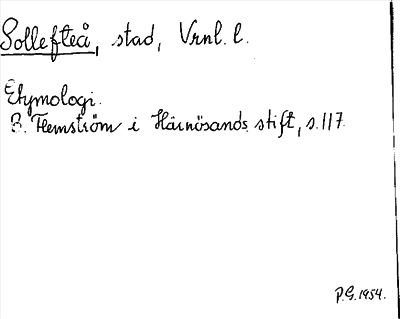 Sollefteå, stad, Vrnl. l.
Etymologi.
B. Flemström i Härnösands stift, s. 117.
P.G. 1954.